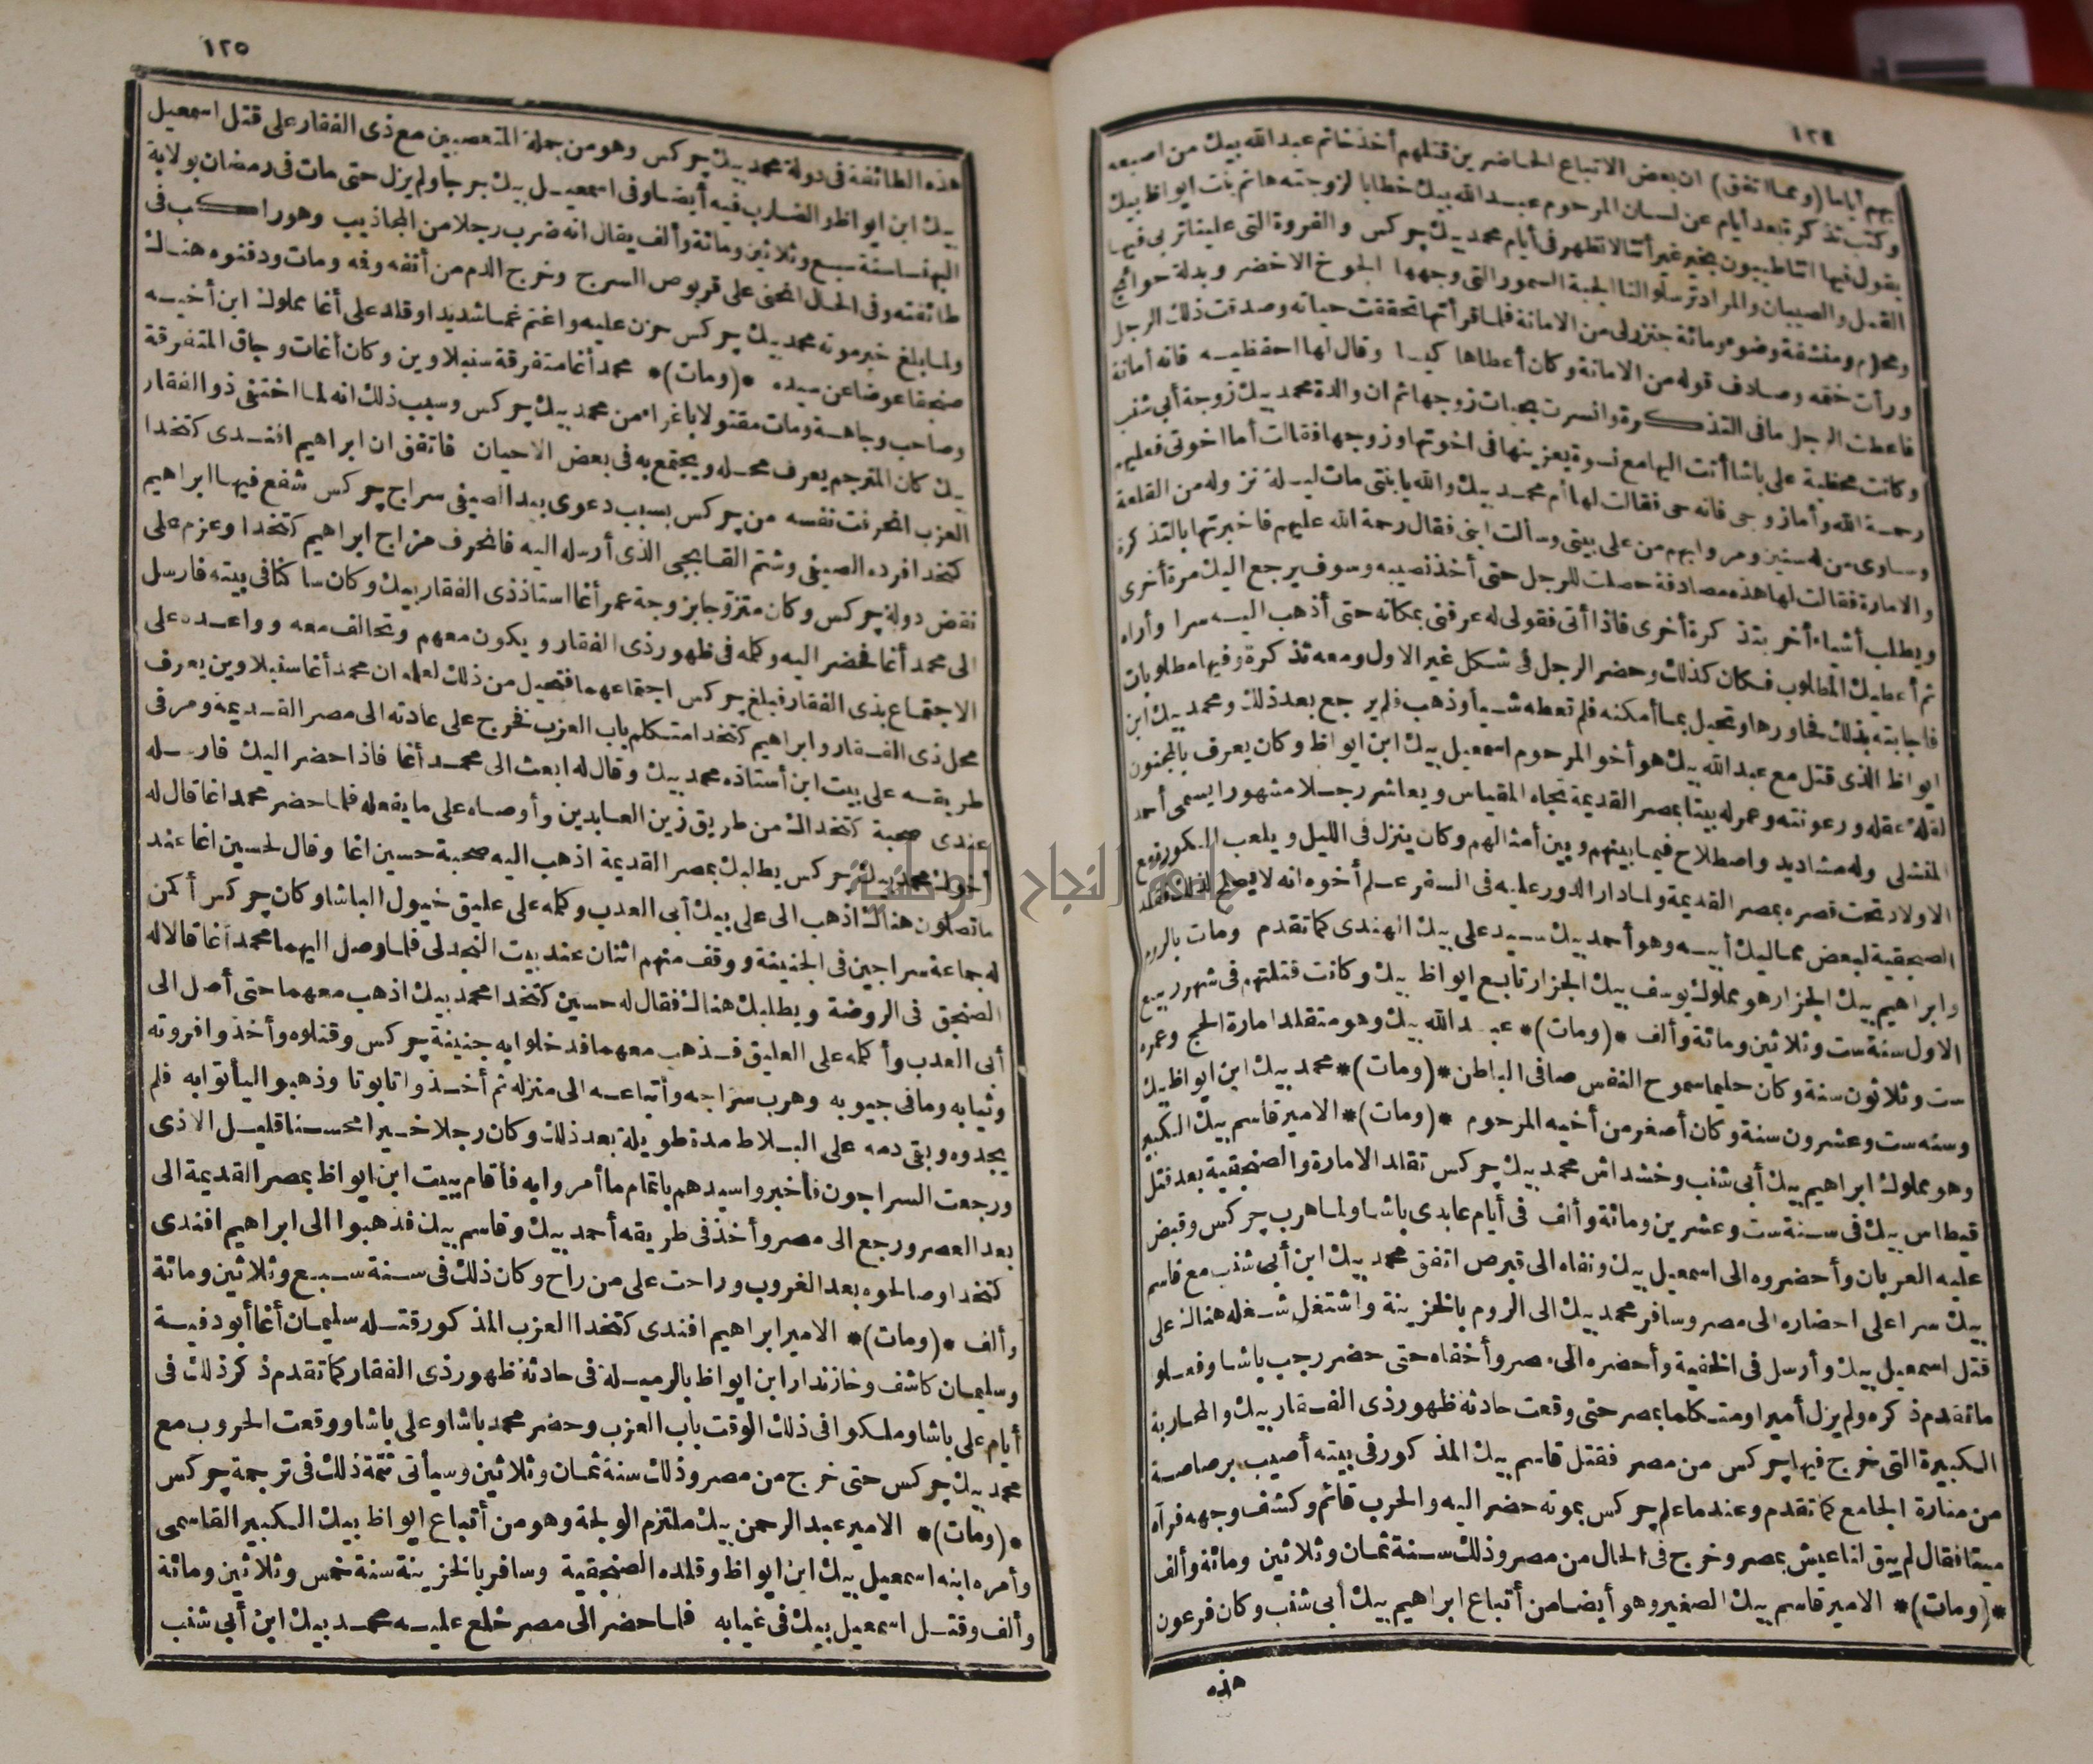 ١٢٤
بهم أياما (ومما اتفق) ان بعض الاتباع الحاضرين قتلهم أخذ خاتم عبد الله بيك من اصبعه
وكتب تذكرة بعد أيام عن لسان المرحوم عبد الله بيك خطابا لزوجته هانم بنت ايواظ بيك
يقول فيها اننا طيبون بخير غير أننا لا نظهر فى أيام محمد بيك چركس والفروة التى علينا تربى فيها
القمل والصيبان والمراد ترسلوا لنا الجبة السمور التى وجهها الجوخ الاخضر وبدلة حوائج
ومحارم ومنشفة وضوء ومائة جنزرلى من الامانة فلما قرأتها تحققت حياته وصدقت ذلك الرجل
ورأت ختمه وصادف قوله من الامانة وكان أعطاها كيسا وقال لها احفظيه فانه أمانة
فاعطت الرجل مافى التذكرة وانسرت بحياة زوجها ثم ان والدة محمد بيك زوجة أبى شنب
وكانت محظية على باشا أتت اليها مع نسوة يعزينها فى اخوتها وزوجها فقالت أما اخوتى فعليهم
رحمة الله وأما زوجى فانه حى فقالت لها أم محمد بيك والله يا بنتى مات ليلة نزوله من القلعة
وسارى من له سنين ومروا بهم من على بيتى وسألت ابنى فقال رحمة الله عليهم فاخبرتها بالتذكرة
والامارة فقالت لها هذه مصادفة حصلت للرجل حتى أخذ نصيبه وسوف يرجع اليك مرة أخرى
ويطلب أشياء أخر بتذكرة أخرى فاذا أتى فقولى له عرفنى بمكانه حتى أذهب اليه سرا وأراه
ثم أعطيك المطلوب فكان كذلك وحضر الرجل فى شكل غير الاول ومعه تذكرة وفيها مطلوبات
فاجابته بذلك فحاورها وتحيل بما أمكنه فلم تعطه شيأ وذهب فلم يرجع بعد ذلك ومحمد بيك ابن
ايواظ الذى قتل مع عبد الله بيك هو أخو المرحوم اسمعيل بيك ابن ايواظ وكان يعرف بالمجنون
لقلة عقله ورعونته وعمر له بيتا بمصر القديمة تجاه المقياس ويعاشر رجلا مشهورا يسمى أحمد
المنشلى وله مشاديد واصطلاح فيما بينهم وبين أمثالهم وكان ينزل فى الليل ويلعب المكور مع
الاولاد تحت قصره بمصر القديمة ولما دار الدور عليه فى السفر علم أخوه انه لا يصلح لذلك فقلد
الصنجقية لبعض مماليك أبيه وهو أحمد بيك سيد على بيك الهندى كما تقدم ومات بالروم
وابراهيم بيك الجزار هو مملوك يوسف بيك الجزار تابع ايواظ بيك وكانت قتلتهم فى شهر ربيع
الاول سنة ست وثلاثين ومائة وألف *(ومات)* عبد الله بيك وهو متقلد امارة الحج وعمره
ست وثلاثون سنة وكان حليما سموح النفس صافى الباطن *(ومات)* محمد بيك ابن ايواظ بيك
وسنه ست وعشرون سنة وكان أصغر من أخيه المرحوم *(ومات)* الامير قاسم بيك الكبير
وهو مملوك ابراهيم بيك أبى شنب وخشداش محمد بيك چركس تقلد الامارة والصنجقية بعد قتل
قيطاس بيك فى سنة ست وعشرين ومائة وألف فى أيام عابدى باشا ولما هرب چركس وقبض
عليه العربان وأحضروه الى اسمعيل بيك ونفاه الى قبرص اتفق محمد بيك ابن أبى شنب مع قاسم
بيك سرا على احضاره الى مصر وسافر محمد بيك الى الروم بالخزينة واشتغل شغله هناك على
قتل اسمعيل بيك وأرسل فى الخفية وأحضره الى مصر وأخفاه حتى حضر رجب باشا وفعلو
ما تقدم ذكره ولم يزل أميرا ومتكلما بمصر حتى وقعت حادثة ظهور ذى الفقار بيك والمحاربة
الكبيرة التى خرج فيها چركس من مصر فقتل قاسم بيك المذكور فى بيته أصيب برصاصة
من منارة الجامع كما تقدم وعندما علم چركس بموته حضر اليه والحرب قائم وكشف وجهه فرآه
ميتا فقال لم يبق لنا عيش بمصر وخرج فى الحال من مصر وذلك سنة ثمان وثلاثين ومائة وألف
*(ومات)* الامير قاسم بيك الصغير وهو أيضا من أتباع ابراهيم بيك أبى شنب وكان فرعون
هذه
١٢٥
هذه الطائفة فى دولة محمد بيك چركس وهو من جملة المتعصبين مع ذى الفقار على قتل اسمعيل
بيك ابن ايواظ والضارب فيه أيضا وفى اسمعيل بيك جرجا ولم يزل حتى مات فى رمضان بولاية
البهنسا سنة سبع وثلاثين ومائة وألف يقال انه ضرب رجلا من المجاذيب وهو راكب فى
طائفته وفى الحال انحنى على قربوص السرج وخرج الدم من أنفه وفمه ومات ودفنوه هناك
ولما بلغ خبر موته محمد بيك چركس حزن عليه واغتم غما شديدا وقلد على أغا مملوك ابن أخيه
صنجقا عوضا عن سيده *(ومات)* محمد أغا متفرقة سنبلاوين وكان أغات وجاق المتفرقة
وصاحب وجاهة ومات مقتولا باغراء من محمد بيك چركس وسبب ذلك انه لما اختفى ذو الفقار
بيك كان المترجم يعرف محله ويجتمع به فى بعض الاحيان فاتفق ان ابراهيم افندى كتخدا
العزب انحرفت نفسه من چركس بسبب دعوى بيد الصيفى سراج چركس شفع فيها ابراهيم
كتخدا فرده الصيفى وشتم القابجى الذى أرسله اليه فانحرف مزاج ابراهيم كتخدا وعزم على
نقض دولة چركس وكان متزوجا بزوجة عمر أغا استاذ ذى الفقار بيك وكان ساكنا فى بيته فارسل
الى محمد أغا فحضر اليه وكلمه فى ظهور ذى الفقار ويكون معهم وتحالف معه وواعده على
الاجتماع بذى الفقار فبلغ چركس اجتماعهما فتخيل من ذلك لعلمه ان محمد أغا سنبلاوين يعرف
محل ذى الفقار وابراهيم كتخدا متكلم باب العزب فخرج على عادته الى مصر القديمة ومر فى
طريقه على بيت ابن أستاذه محمد بيك وقال له ابعث الى محمد أغا فاذا حضر اليك فارسله
عندى صحبة كتخداك من طريق زين العابدين وأوصاه على ما يفعله فلما حضر محمد أغا قال له
أخوك محمد بيك چركس يطلبك بمصر القديمة اذهب اليه صحبة حسين اغا وقال لحسين اغا عند
ما تصلون هناك اذهب الى على بيك أبى العدب وكلمه على عليق خيول الباشا وكان چركس أكمن
له جماعة سراجين فى الجنينة ووقف منهم اثنان عند بيت النجدلى فلما وصل اليهما محمد أغا قالا له
الصنجق فى الروضة ويطلبك هناك فقال له حسين كتخدا محمد بيك اذهب معهما حتى أصل الى
أبى العدب وأكلمه على العليق فذهب معهما فدخلوا به جنينة چركس وقتلوه وأخذوا فروته
وثيابه وما فى جيوبه وهرب سراجه وأتباعه الى منزله ثم أخذوا تابوتا وذهبوا ليأتوا به فلم
يجدوه وبقى دمه على البلاط مدة طويلة بعد ذلك وكان رجلا خيرا محسنا قليل الاذى
ورجعت السراجون فأخبروا سيدهم باتمام ما أمروا به فأقام ببيت ابن ايواظ بمصر القديمة الى
بعد العصر ورجع الى مصر وأخذ فى طريقه أحمد بيك وقاسم بيك فذهبوا الى ابراهيم افندى
كتخدا وصالحوه بعد الغروب وراحت على من راح وكان ذلك فى سنة سبع وثلاثين ومائة
وألف *(ومات)* الامير ابراهيم افندى كتخدا العزب المذكور قتله سليمان أغا أبو دفية
وسليمان كاشف وخازندار ابن ايواظ بالرميلة فى حادثة ظهور ذى الفقار كما تقدم ذكر ذلك فى
أيام على باشا وملكوا فى ذلك الوقت باب العزب وحضر محمد باشا وعلى باشا ووقعت الحروب مع
محمد بيك چركس حتى خرج من مصر وذلك سنة ثمان وثلاثين وسيأتى تتمة ذلك فى ترجمة چركس
*(ومات)* الامير عبد الرحمن بيك ملتزم الولجة وهو من أتباع ايواظ بيك الكبير القاسمى
وأمره ابنه اسمعيل بيك ابن ايواظ وقلده الصنجقية وسافر بالخزينة سنة خمس وثلاثين ومائة
وألف وقتل اسمعيل بيك فى غيابه فلما حضر الى مصر خلع عليه محمد بيك ابن أبى شنب
جامعة النجاح الوطنية